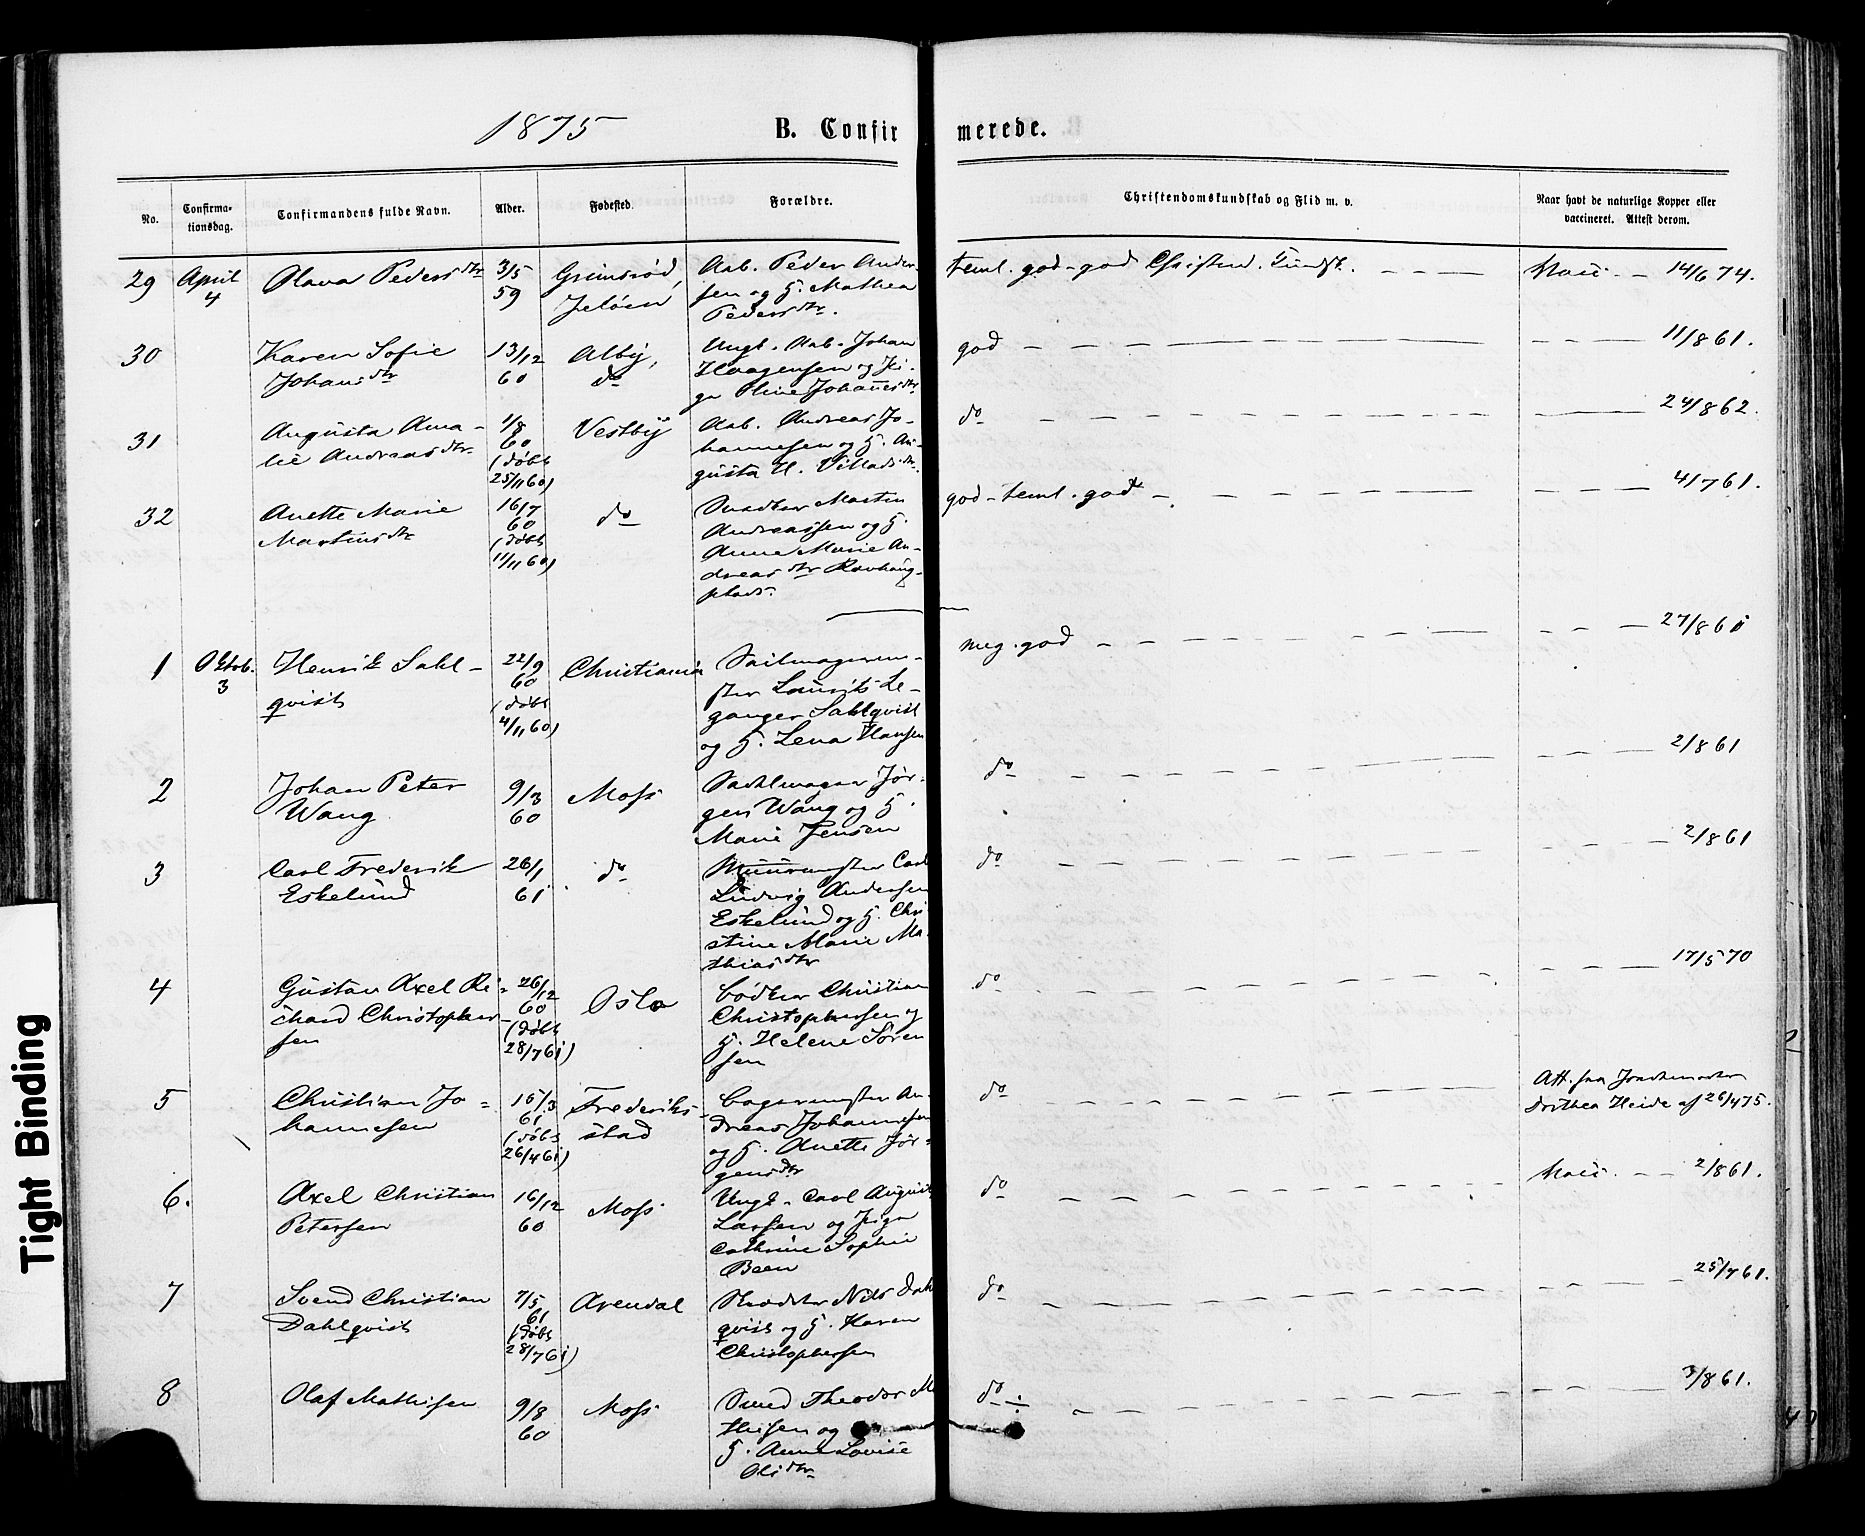 1875
B. Confir merede.
No.
Confirma-
tionsdag.
Confirmandens fulde Navn.
Alder.
Fødested.
Forældre.
Christendomskundskab og Flid m. v.
Naar havt de naturlige Kopper eller
vaccineret. Attest derom.
29 April 4
Olava Pedersdtr
3/5
59
Grimsrød,
Jeløen
Aab. Peder Ander-
sen og H. Mathea
Pedersdtr.
teml. god - god Christend. Kundsk.
Vacc. 14/6 74.
30
Karen Sofie
Johansdtr
13/12
60
Alby,
do
Ungk. Aab. Johan
Haagensen og Pi-
ge Oline Johannesdtr
god
11/8 61.
31
Augusta Ama-
lie Andreasdtr
1/8
60
(døbt
25/11 60)
Vestby
Aab. Andreas Jo-
hannesen og H. Au-
gusta H. Villadsdtr.
do
24/8 62.
32
Anette Marie
Martinsdtr
16/7
60
(døbt
11/11 60)
do
Martin
Andreassen og H.
Anne Marie An-
dreasdtr
plads.
god - teml. god
4/7 61.
1 Oktob. 3
Henrik Sahl-
qvist
22/9
60
(døbt
4/11 60)
Christiania
Seilmagerme-
ster Laurits Le-
ganger Sahlqvist
og H. Lena Hansen
meg. god
27/8 61
2
Johan Peter
Wang
9/3
60
Moss
Sadelmager Jør-
gen Wang og H.
Marie Jensen
do
2/8 61
3
Carl Frederik
Eskelund
26/1
61
do
Muurmester Carl
Ludvig Andersen
Eskelund og H. Chri-
stine Marie Ma-
thiasdtr
do
2/8 61
4
Gustav Axel Ri-
chard Christopher-
sen
26/12
60
(døbt
28/7 61)
Oslo
Bødker Christian
Christophersen og
H. Helene Sören-
sen
do
17/5 70
5
Christian Jo-
hannesen
15/3
61
(døbt
26/4 61)
Frederiks-
stad
Bagermester An-
dreas Johannesen
og H. Anette Jør-
gensdtr
do
Att. fra Jordemoder
Dorthea Heide af 26/4 75.
6.
Axel Christian
Petersen
16/12
60
Moss
Ungk. Carl August
Larsen og Pige
Cathrine Sophie
Been
do
Vacc. 2/8 61.
7
Svend Christian
Dahlqvist
7/5
61
(døbt
28/7 61)
Arendal
Nils Dahl
qvist og H. Karen
Christophersen
do
25/7 61.
8
Olaf Mathisen
9/8
60
Moss
Smed Theodor Ma
thisen og
H. Anne Lovise
Olsdtr
do ÷
3/8 61.
Tight Binding